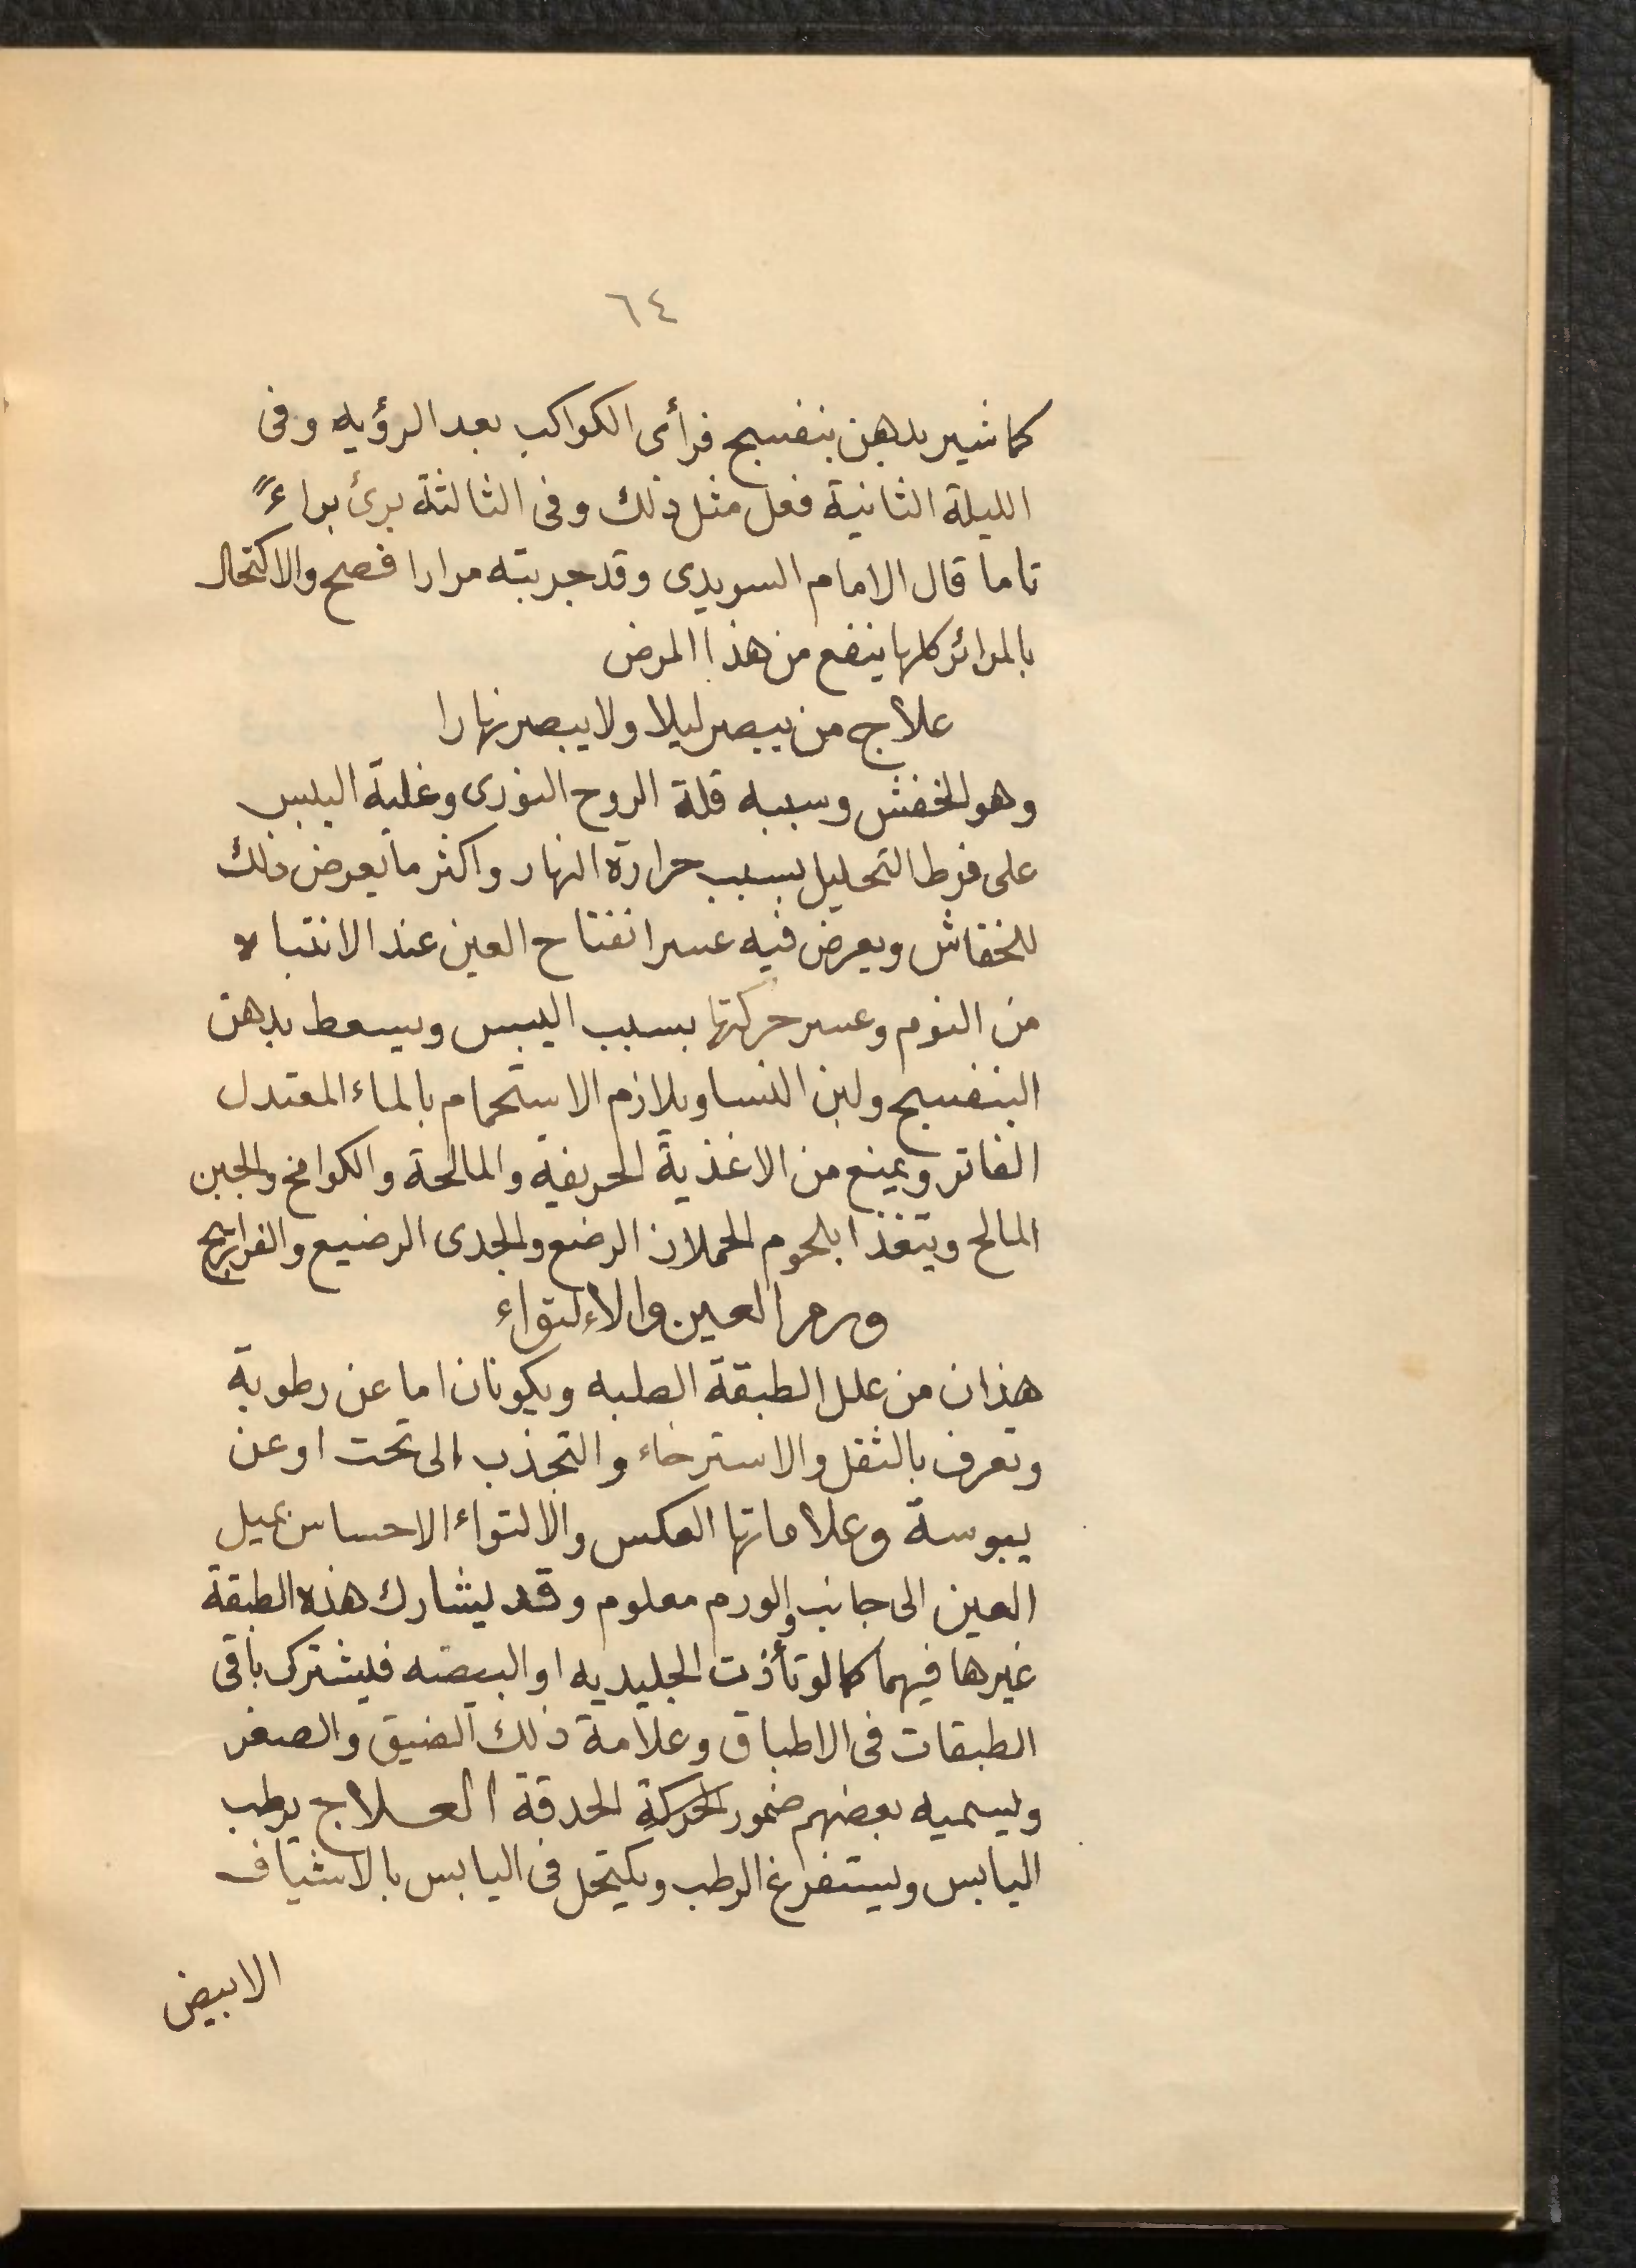 ٦٤
كما شير بدهن بنفسبج فرأى الكواكب بعد الرؤيه وفى
الليلة الثانية فعل مثل ذلك وفى الثالثة برئ براءً
تاما قال الامام السويدى وقد جربته مرارا فصح والاكتحال
بالمرائر كلها ينفع من هذا المرض
علاج من يبصر ليلا ولا يبصر نهارا
وهو الخفش وسببه قلة الروح النورى وغلبة اليبس
على فرط التحليل بسبب حرارة النهار واكثر ما يعرض ذلك
للخفاش ويعرض فيه عسر انفتاح العين عند الانتباه
من النوم وعسر حركتها بسبب اليبس ويسعط بدهن
البنفسبج ولبن النسا ويلازم الاستحمام بالماء المعتدل
الفاتر ويمنع من الاغذية الحريفة والمالحة والكوامخ والجبن
المالح ويتغذا بلحوم الحملان الرضع والجدى الرضيع والفراريج
ورم العين والاءلتواء
هذان من علل الطبقة الصلبه ويكونان اما عن رطوبة
وتعرف بالثقل والاسترخاء والتجذب الى تحت او عن
يبوسة وعلاماتها العكس والالتواء الاحساس بميل
العين الى جانب والورم معلوم وقد يشارك هذه الطبقة
غيرها فيهما كما لو تأذت الجليديه او البيضه فيشترك باقى
الطبقات فى الاطباق وعلامة ذلك الضيق والصغر
ويسميه بعضهم ضمور الحركة الحدقة العلاج يرطب
اليابس ويستفرغ الرطب ويكتحل فى اليابس بالاشياف
الابيض